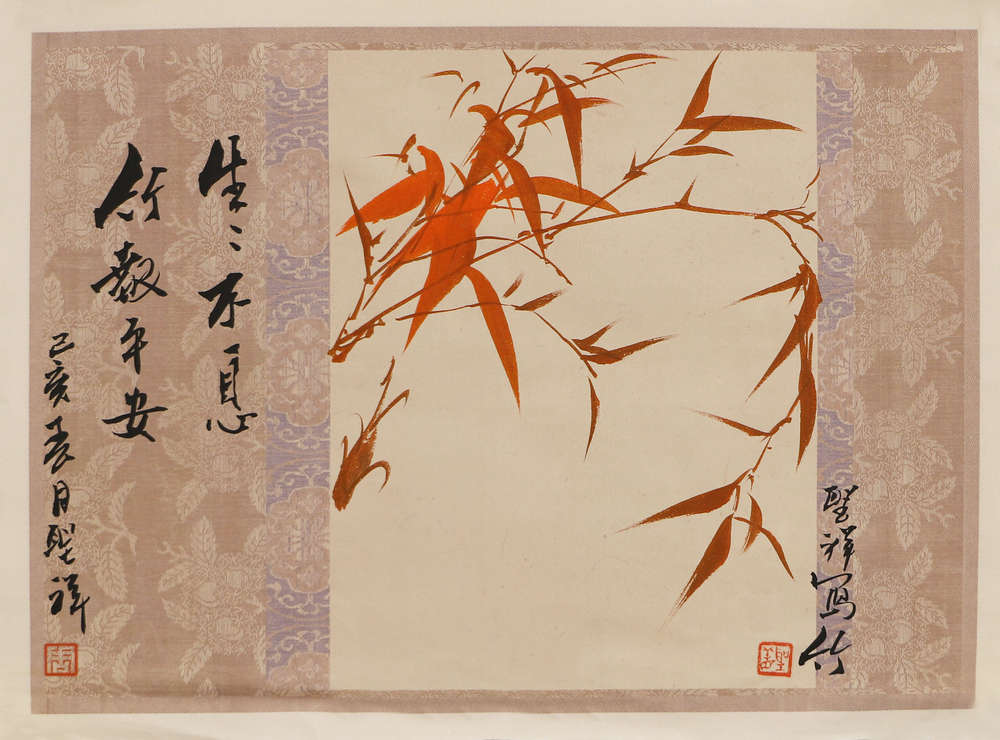 聖祥寫竹
生〻不息
竹報平安
己亥春月聖祥